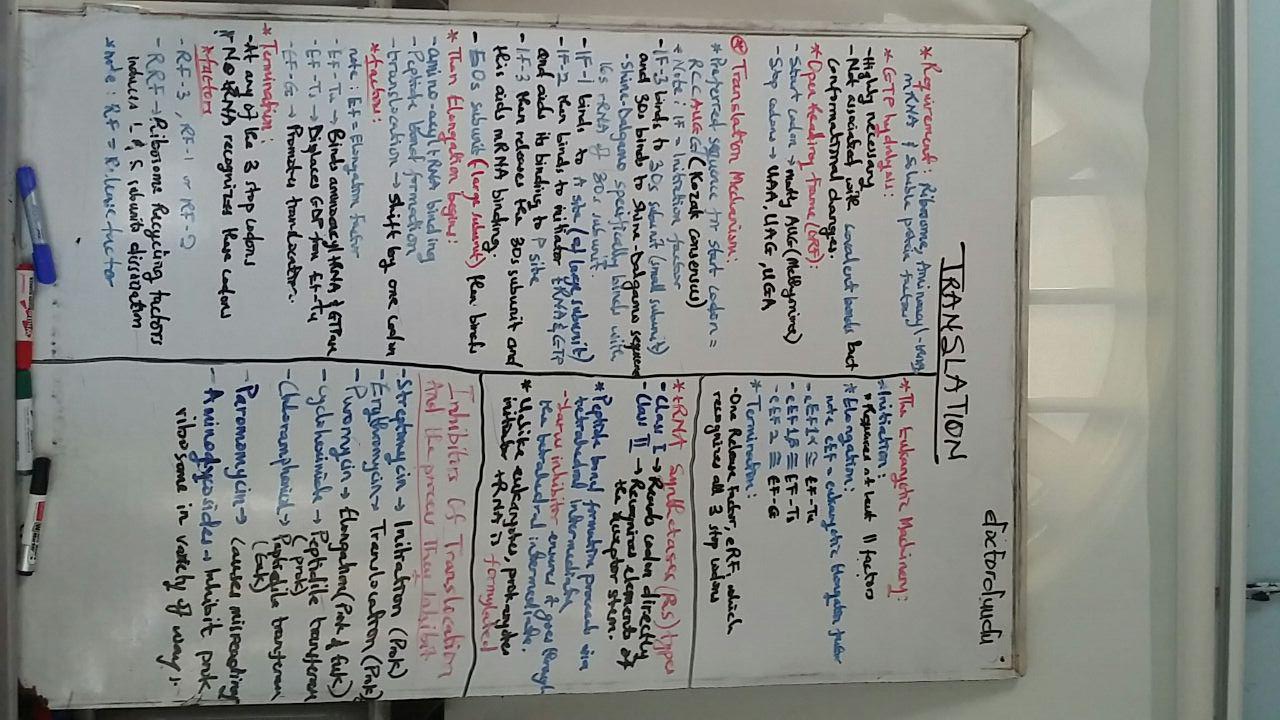 doctordundu
TRANSLATION
* Requirement: Ribosome, Aminoacyl-tRNA,
mRNA & Soluble protein factors
* GTP hydrolysis:
- Highly necessary
- Not associated with covalent bonds but
conformational changes.
* Open Reading Frame (ORF):
- Start codon → mostly AUG (Methionine)
- Stop codons → UAA, UAG, UGA
* Translation Mechanism:
* Preferred sequence for start codon =
RCCAUGG (Kozak consensus)
* Note: IF = Initiation factor
- IF-3 binds to 30s subunit (small subunit)
and 30s binds to Shine-Dalgarno sequence
- Shine-Dalgarno specifically binds with
16s rRNA of 30s subunit.
- IF-1 binds to A site (of large subunit)
- IF-2 then binds to initiator tRNA & GTP
and aids its binding to P site
- IF-3 then releases the 30s subunit and
this aids mRNA binding.
- 50s subunit (large subunit) then binds
* Then Elongation begins:
- amino-acyl tRNA binding
- Peptide bond formation
- translocation → shift by one codon
* factors:
note: EF = Elongation factor
- EF-Tu → Binds aminoacyl tRNA & GTP
- EF-Ts → Displaces GDP from EF-Tu
- EF-G → Promotes translocation.
* Termination:
- At any of the 3 stop codons
- No tRNA recognizes these codons
* factors
- RF-3, RF-1 or RF-2
- RRF → Ribosome Recycling factors
induces L & S subunits dissociation
* note: RF = Release factor
* The Eukaryotic Machinery:
* Initiation:
* Requires at least 11 factors
* Elongation:
note eEF = eukaryotic elongation factor
- eEF1α ≅ EF-Tu
- eEF1β ≅ EF-Ts
- eEF2 ≅ EF-G
* Termination:
- One Release factor, eRF which
recognizes all 3 stop codons
* tRNA Synthetases (RS) types
- Class I → Reads codon directly
- Class II → Recognizes elements of
the acceptor stem.
* Peptide bond formation proceeds via
tetrahedral intermediate
the tetrahedral intermediate.
* Unlike eukaryotes, prokaryotes
initiator tRNA is formylated
Inhibitors Of Translocation
And the process They inhibit
- Streptomycin → Initiation (Prok)
- Erythromycin → Translocation (Prok)
- Puromycin → Elongation (Prok & Euk)
- Cycloheximide → Peptidile transferase
(prok)
- Chloramphenicol → Peptidile transferase
(Euk)
- Paromomycin → Causes misreading
- Aminoglycosides → Inhibit prok.
ribosome in variety of ways:-